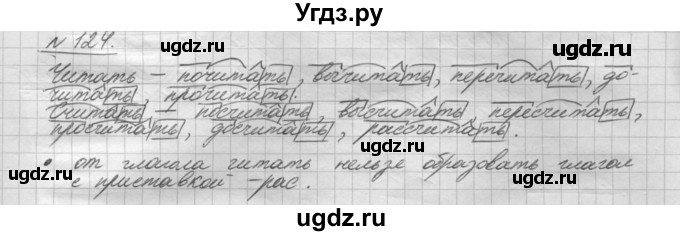 Угдз.ру
N 124.
ugdz.ru ugdz.ru
Читать – почитать, вычитать, перечитать, до-
читать прочитать.
ugdz.ru
Считать – посчитать, высчитать пересчитать,
просчитать, досчитать, рассчитать.
ugdz.ru ugdz.ru
• от глагола читать нельзе образовать глагол
с приставкой -рас.
ugdz.ru ugdz.ru
ugdz.ru